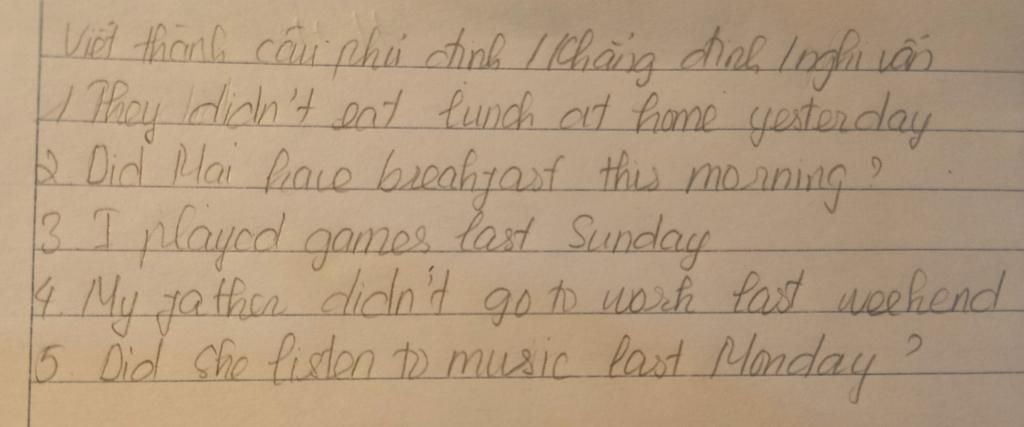 Viết thành câu phủ định / Khẳng định / nghi vấn
1 They didn't eat lunch at home yesterday
2. Did Mai have breakfast this morning?
3 I played games last Sunday
4. My father didn't go to work last weekend
5. Did she listen to music last Monday?